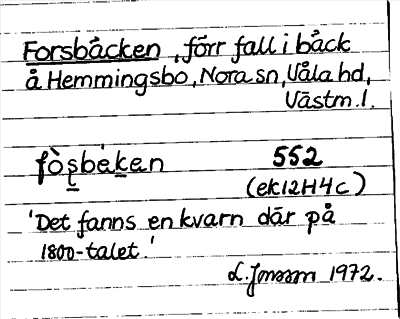 Forsbäcken, förr fall i bäck
å Hemmingsbo, Nora sn, Våla hd,
Västm. l.
fò̀ʂbèken 552
(ek12H4c)
'Det fanns en kvarn där på
1800-talet.'
L. Jonsson 1972.